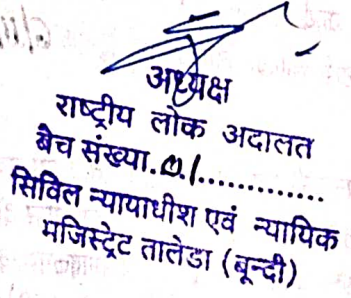 अध्यक्ष
राष्ट्रीय लोक अदालत
बैच संख्या.01..............
सिविल न्यायाधीश एवं न्यायिक
मजिस्ट्रेट तालेडा (बून्दी)